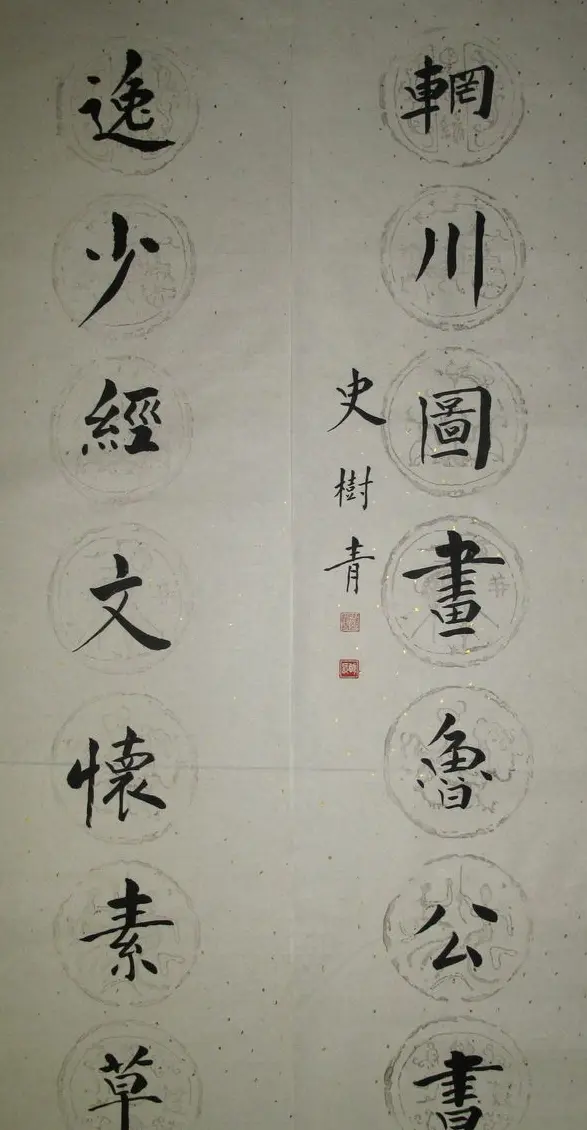 輞川圖畫魯公書
史樹青
逸少經文懷素草